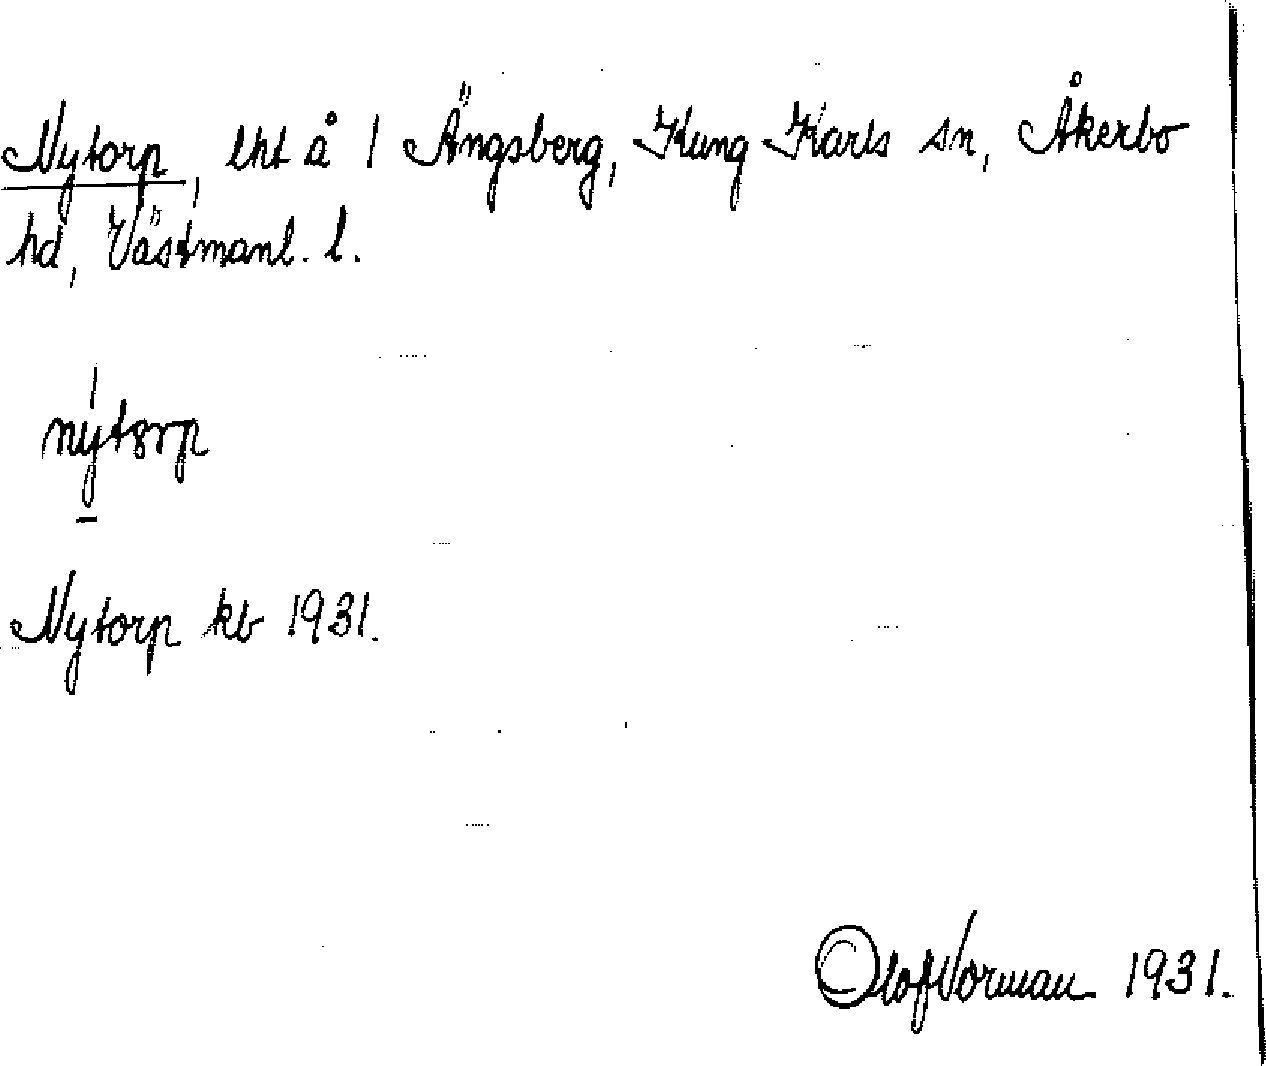 Nytorp, lht å 1 Ängsberg, Kung Karls sn, Åkerbo
hd, Västmanl. l.
nýtorp
Nytorp kb 1931.
Olof Norman 1931.